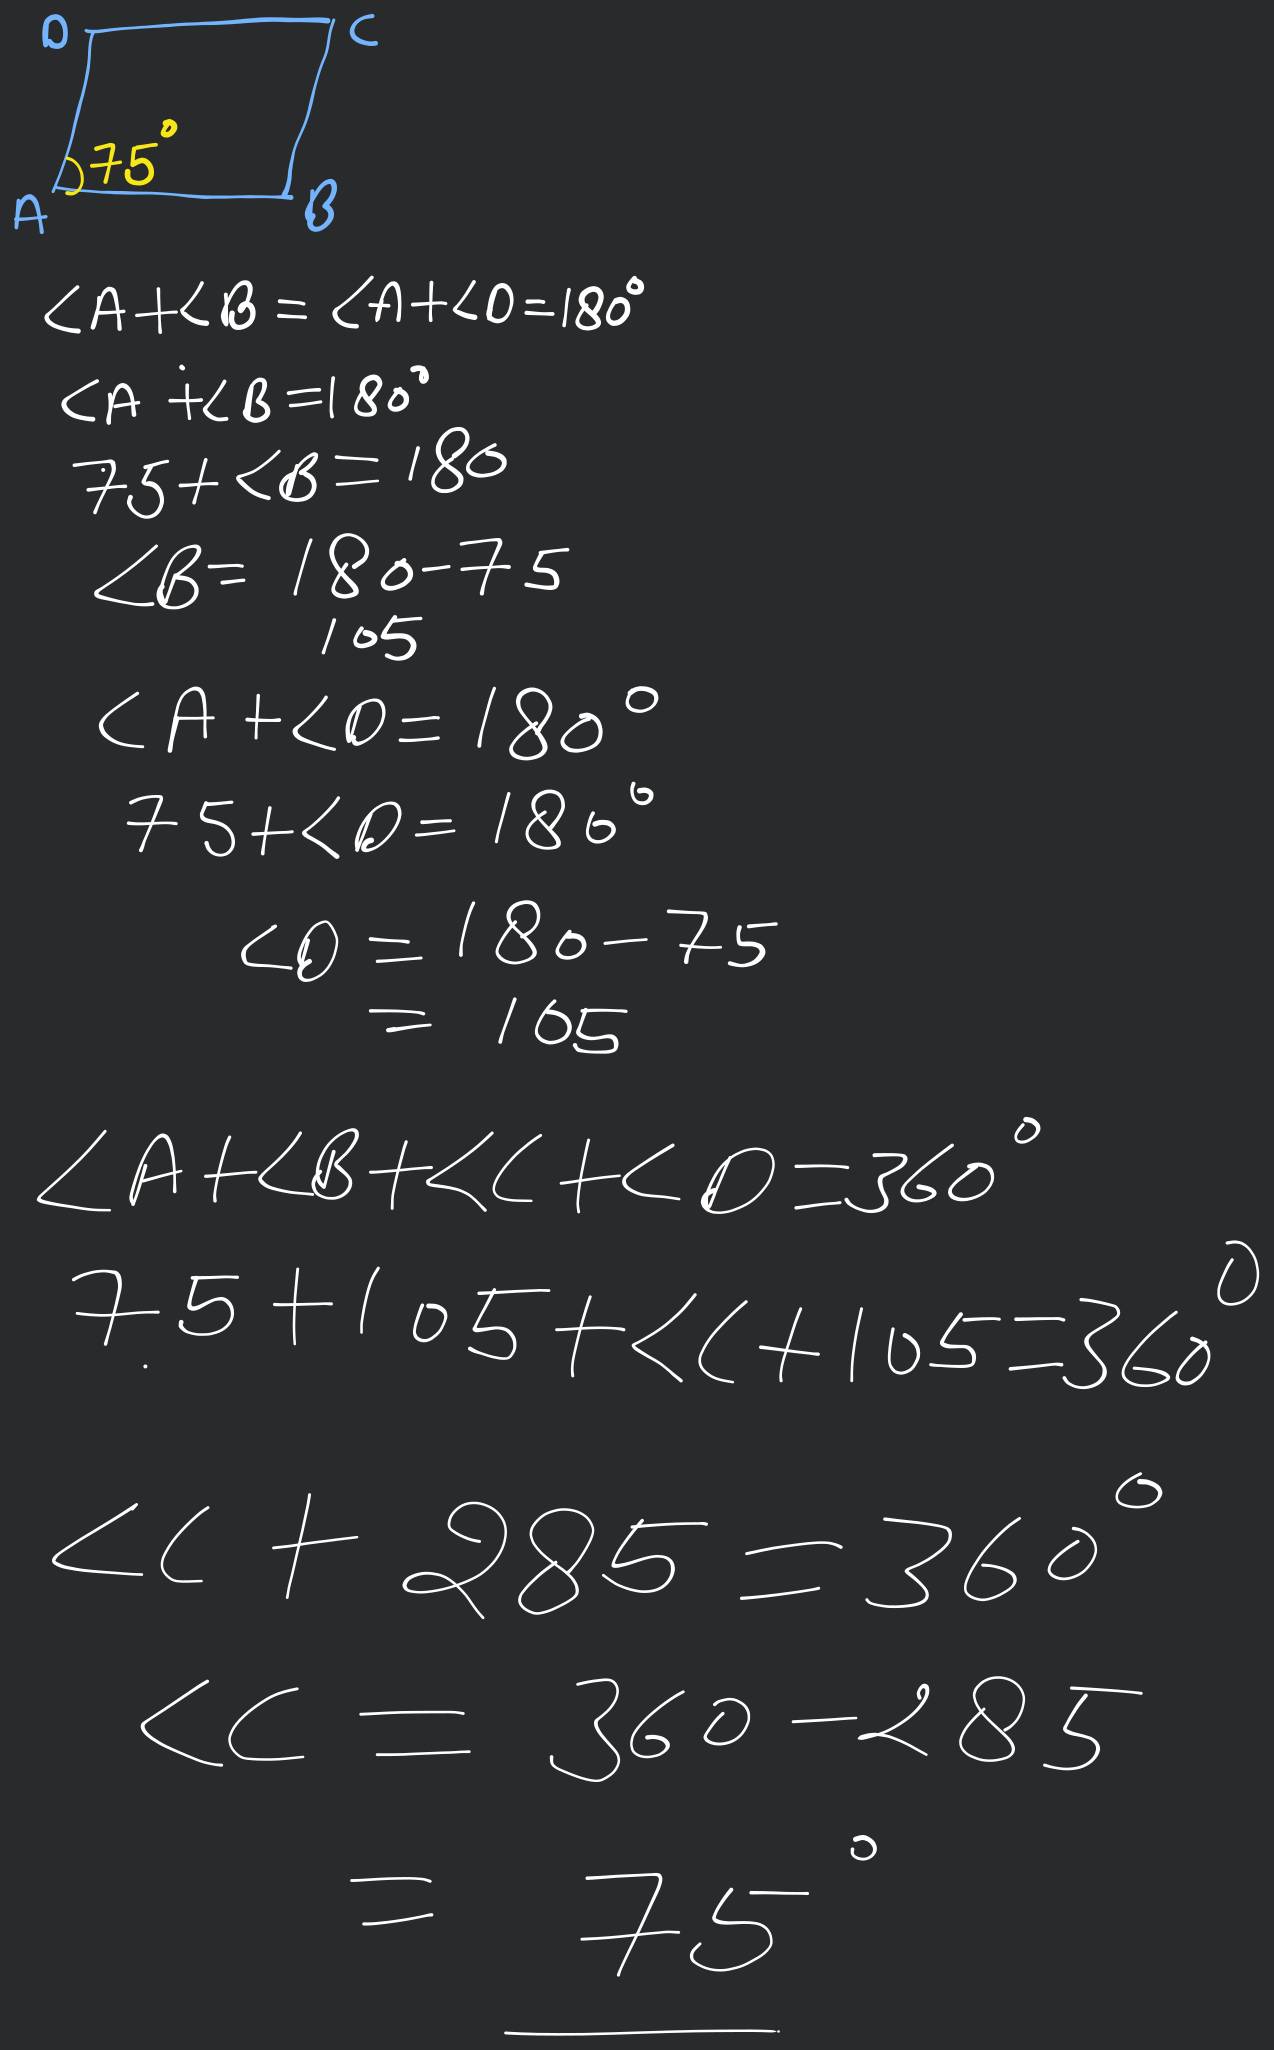 D C
75°
A B
<A+<B=<A+<D=180°
<A+<B=180°
75+<B=180
<B=180-75
105
<A+<D=180°
75+<D=180°
<D=180-75
=105
<A+<B+<C+<D=360°
75+105+<C+105=360°
<C+285=360°
<C=360-285
=75°